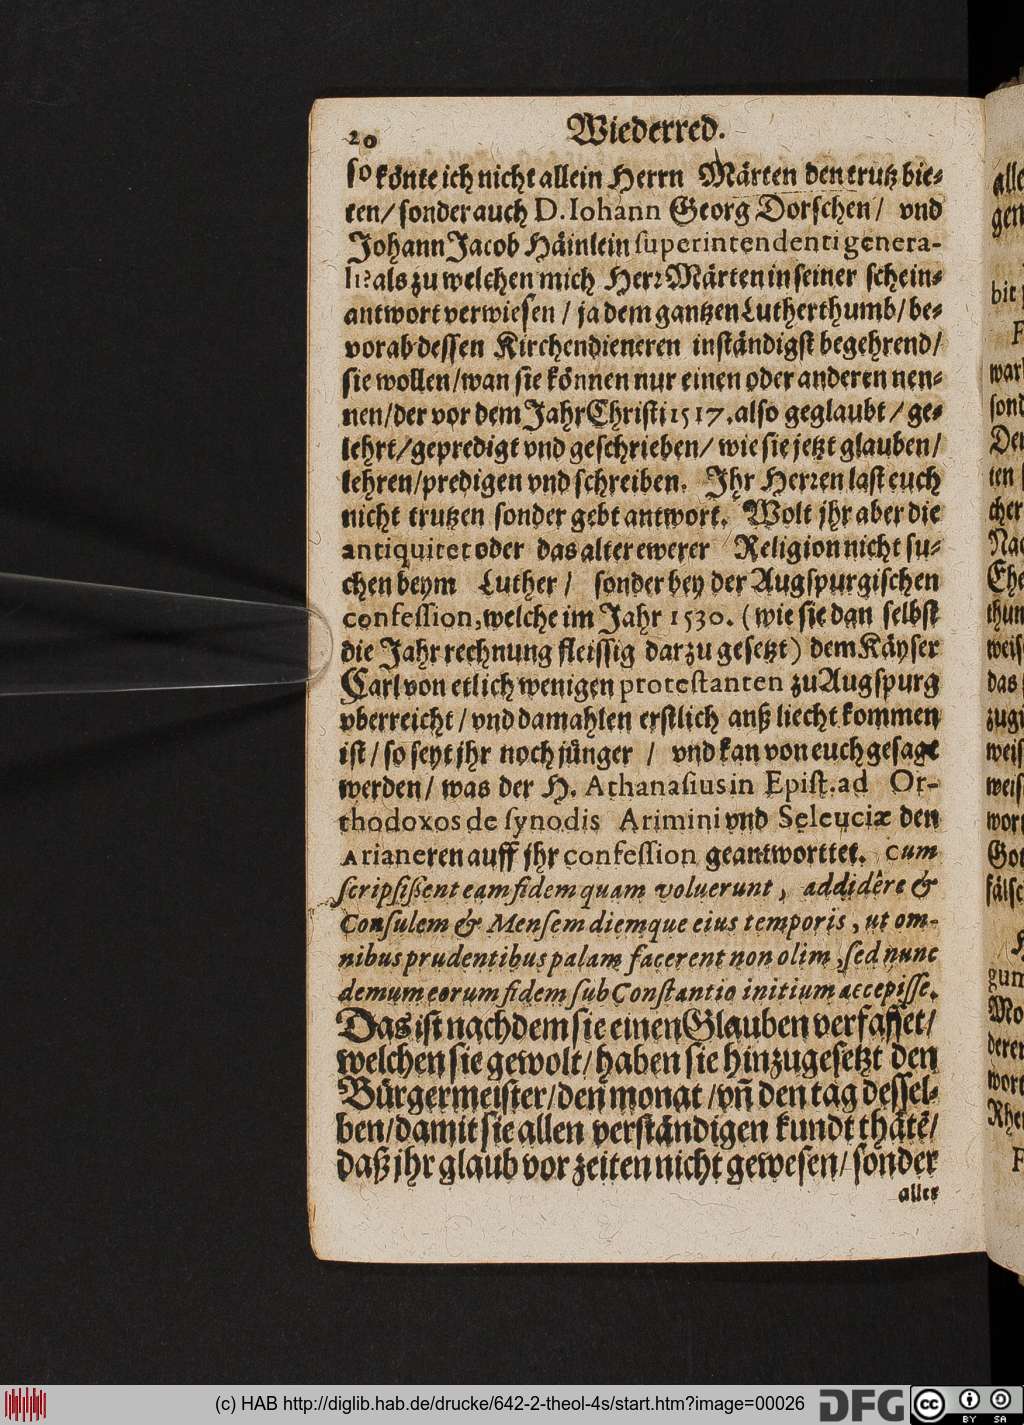 20 Wiederred.
so könte ich nicht allein Herrn Märten den trutz bie-
ten/ sonder auch D. Iohann Georg Dorschen/ vnd
Johann Jacob Häinlein superintendenti genera-
als zu welchen mich Herr Märten in seiner schein-
antwort verwiesen / ja dem gantzen Lutherthumb/ be-
vorab dessen Kirchendieneren inständigst begehrend/
sie wollen/ wan sie können nur einen oder anderen nen-
nen/ der vor dem Jahr Christi 1517. also geglaubt / ge-
lehrt/ gepredigt vnd geschrieben/ wie sie jetzt glauben/
lehren/ predigen vnd schreiben. Jhr Herren last euch
nicht trutzen sonder gebt antwort. Wolt jhr aber die
antiquitet oder das alter ewerer Religion nicht su-
chen beym Luther / sonder bey der Augspurgischen
confession, welche im Jahr 1530. (wie sie dan selbst
die Jahrrechnung fleissig darzu gesetzt) dem Käyser
Carl von etlich wenigen protestanten zu Augspurg
vberreicht / vnd damahlen erstlich anß liecht kommen
ist / so seyt jhr noch jünger / vnd kan von euch gesagt
werden / was der H. Athanasius in Epist. ad Or-
thodoxos de synodis Arimini vnd Seleuciæ den
Arianeren auff jhr confession geantworttet. cum
scripsißent eam fidem quam voluerunt, addidêre &
Consulem & Mensem diemque eius temporis, ut om-
nibus prudentibus palam facerent non olim, sed nunc
demum eorum fidem sub Constantio initium accepisse.
Das ist nachdem sie einen Glauben verfasset/
welchen sie gewolt/ haben sie hinzugesetzt den
Bürgermeister/ den monat / vñ den tag dessel-
ben/ damit sie allen verständigen kundt thätẽ/
daß jhr glaub vor zeiten nicht gewesen/ sonder
aller
alle
gen
bit
war
sond
Den
ten
cher
Nac
Ehe
thun
weis
das
zugi
weis
weis
wor
Got
fälsc
gum
Mo
deren
wort
Rhe
(c) HAB http://diglib.hab.de/drucke/642-2-theol-4s/start.htm?image=00026 DFG cc BY SA